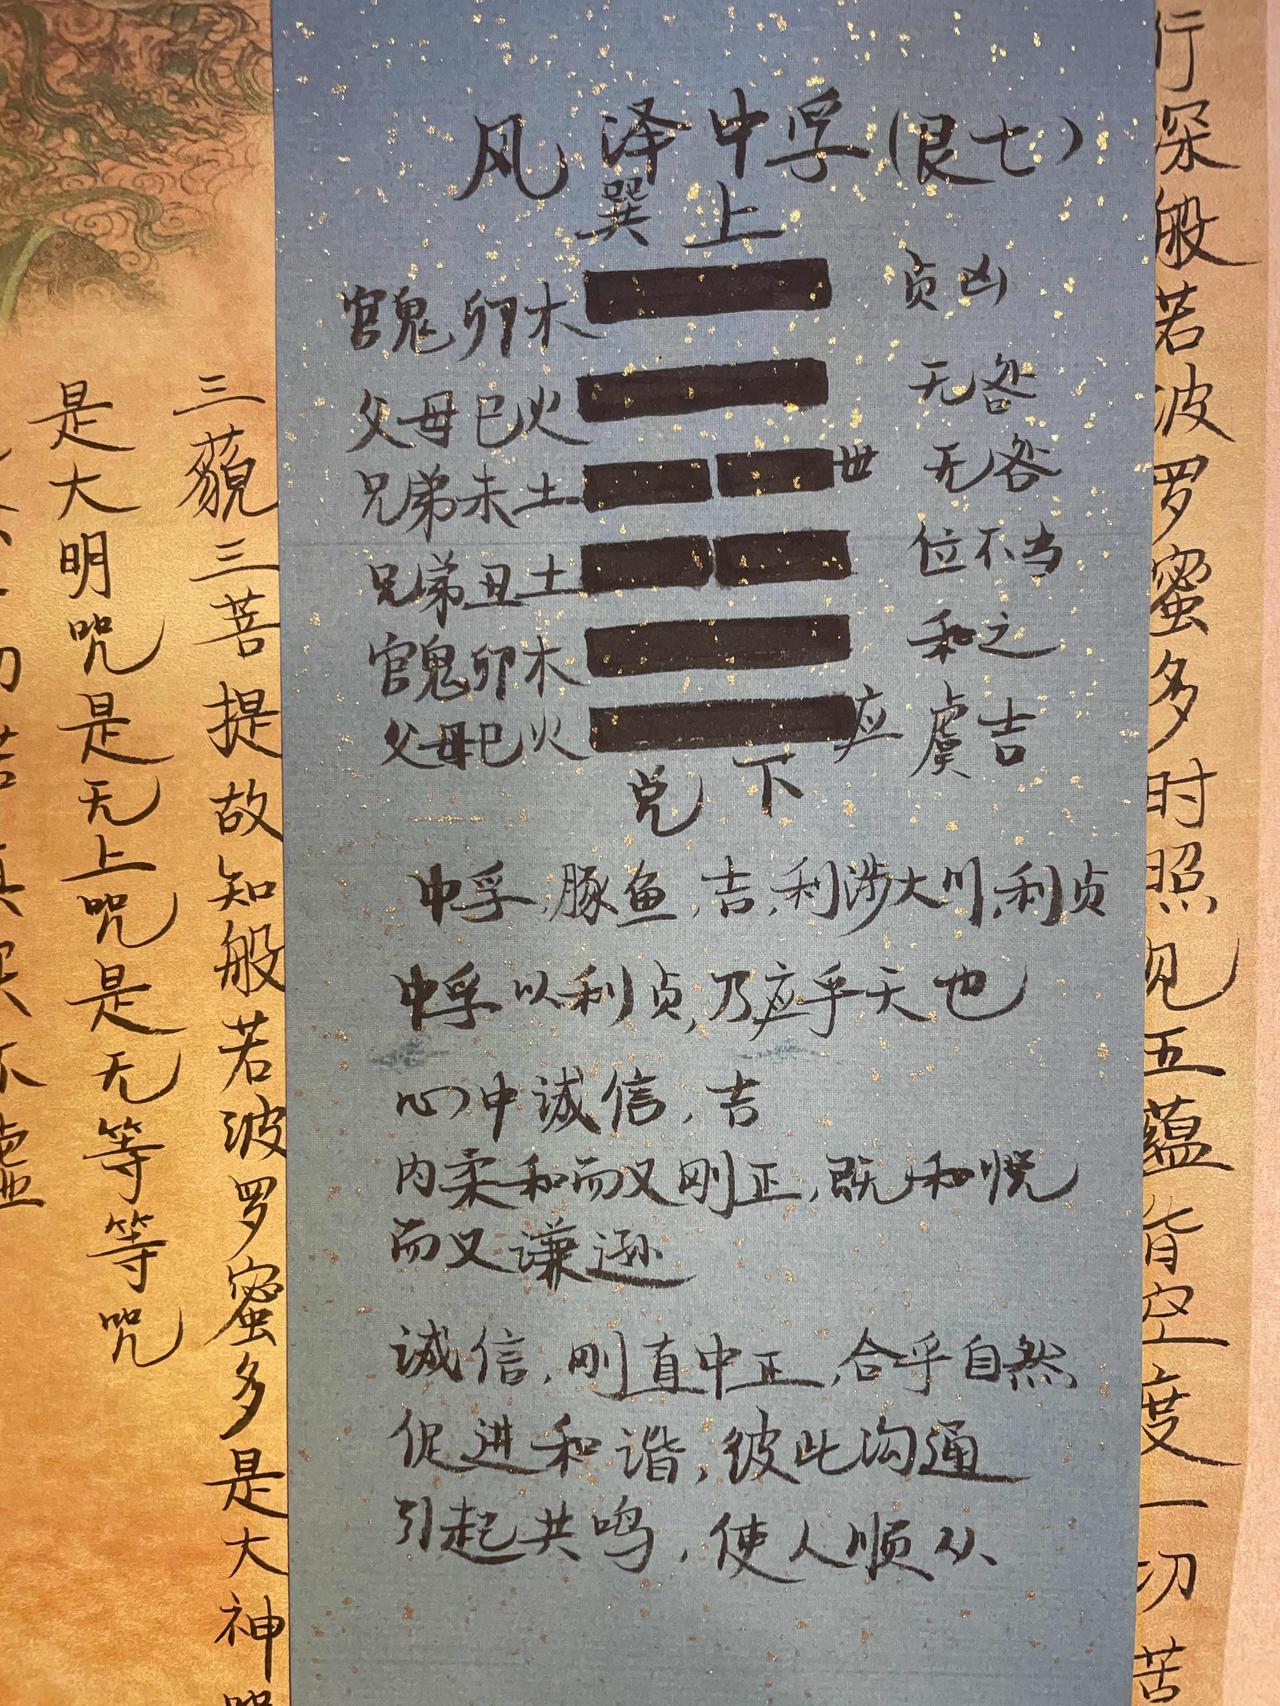 风泽中孚(艮七)
巽上
官鬼卯木 贞凶
父母巳火 无咎
兄弟未土 世 无咎
兄弟丑土 位不当
官鬼卯木 和之
父母巳火 应 虞吉
兑下
中孚,豚鱼,吉,利涉大川,利贞
中孚以利贞,乃应乎天也
心中诚信,吉
内柔和而又刚正,既和悦
而又谦逊
诚信,刚直中正,合乎自然
促进和谐,彼此沟通
引起共鸣,使人顺从
行深般若波罗蜜多时照见五蕴皆空度一切苦
三藐三菩提故知般若波罗蜜多是大神咒
是大明咒是无上咒是无等等咒